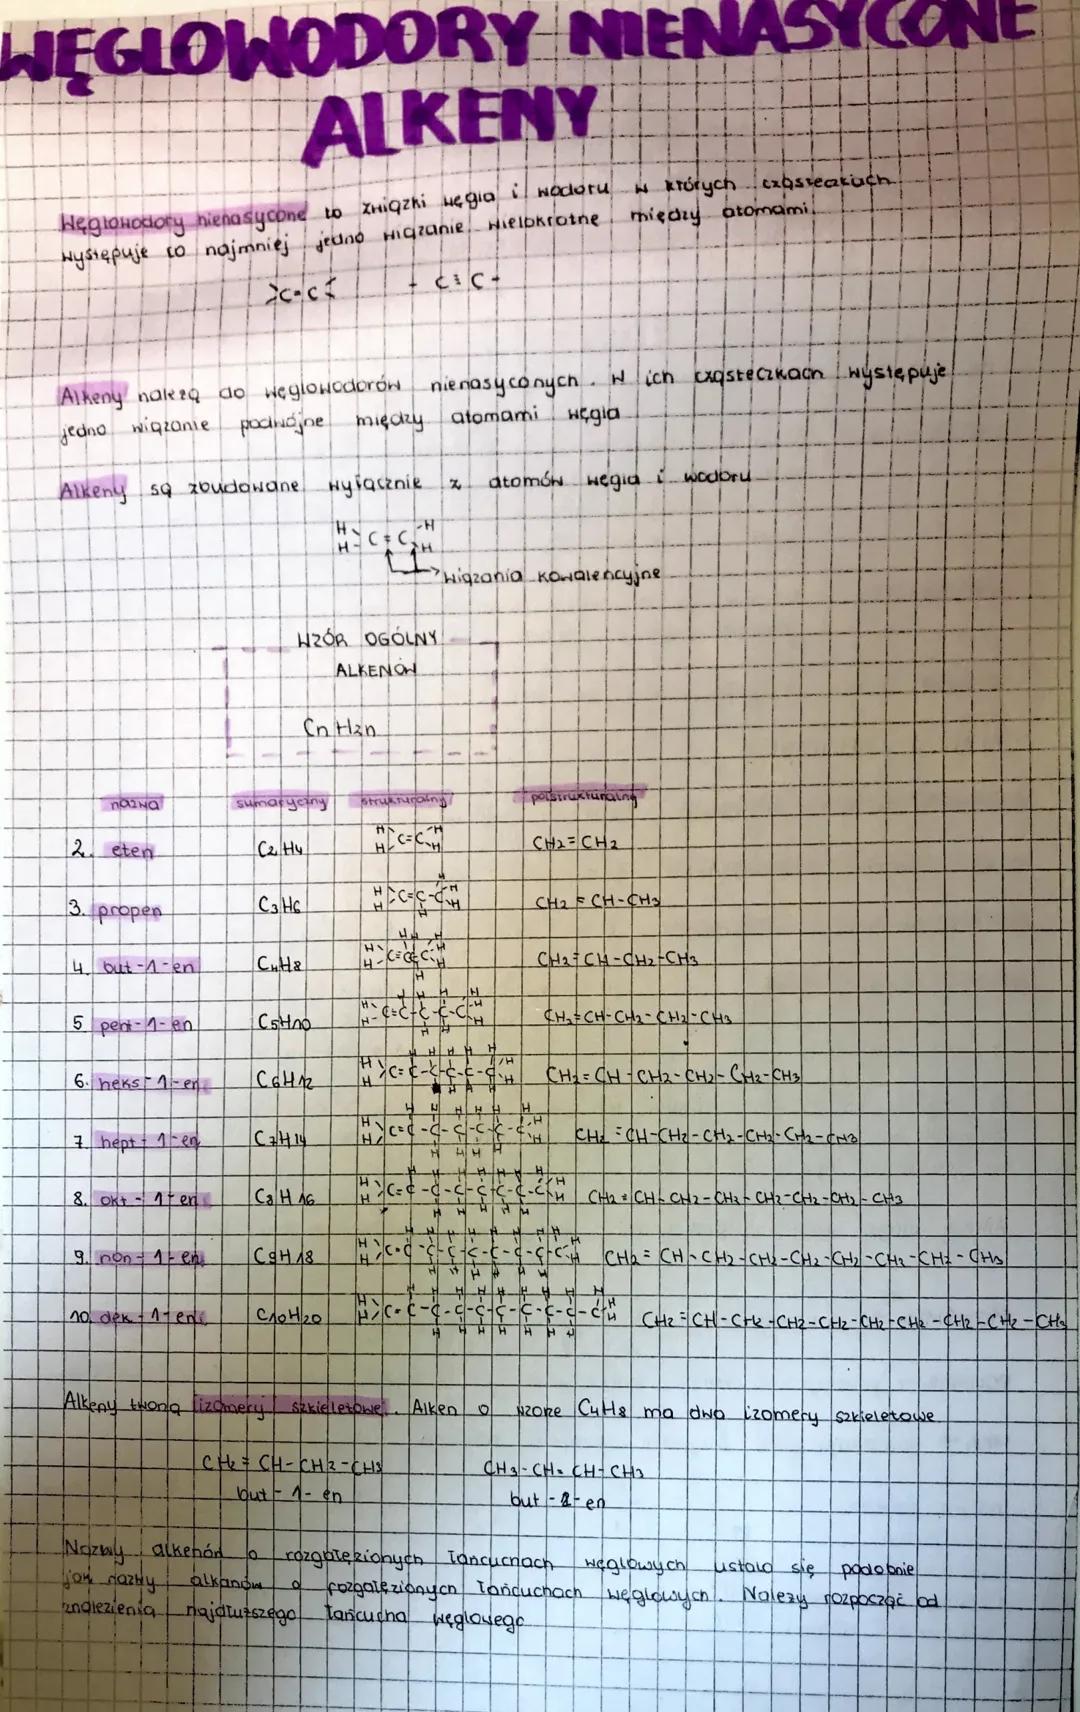 WĘGLOWODORY NIENASYCONE
ALKENY
Węglowodory nienasycone to związki węgla i wodoru w których cząsteczkach
występuje co najmniej jedno wiązanie wielokrotne między atomami.
>C=C< - C≡C -
Alkeny należą do węglowodorów nienasyconych. W ich cząsteczkach występuje
jedno wiązanie podwójne między atomami węgla
Alkeny są zbudowane wyłącznie z atomów węgla i wodoru
H H
C=C
H H
wiązania kowalencyjne
WZÓR OGÓLNY
ALKENÓW
CnH2n
nazwa sumaryczny strukturalny półstrukturalny
2. eten C2H4 CH2=CH2
3. propen C3H6 CH2=CH-CH3
4. but-1-en C4H8 CH2=CH-CH2-CH3
5 pent-1-en C5H10 CH2=CH-CH2-CH2-CH3
6. heks-1-en C6H12 CH2=CH-CH2-CH2-CH2-CH3
7 hept-1-en C7H14 CH2=CH-CH2-CH2-CH2-CH2-CH3
8. okt-1-en C8H16 CH2=CH-CH2-CH2-CH2-CH2-CH2-CH3
9. non-1-en C9H18 CH2=CH-CH2-CH2-CH2-CH2-CH2-CH2-CH3
10. dek-1-en C10H20 CH2=CH-CH2-CH2-CH2-CH2-CH2-CH2-CH2-CH3
Alkeny tworzą izomery szkieletowe. Alken o wzorze C4H8 ma dwa izomery szkieletowe
CH2=CH-CH2-CH3 CH3-CH=CH-CH3
but-1-en but-2-en
Nazwy alkenów o rozgałęzionych łańcuchach węglowych ustala się podobnie
jak nazwy alkanów o rozgałęzionych łańcuchach węglowych. Należy rozpocząć od
znalezienia najdłuższego łańcucha węglowego